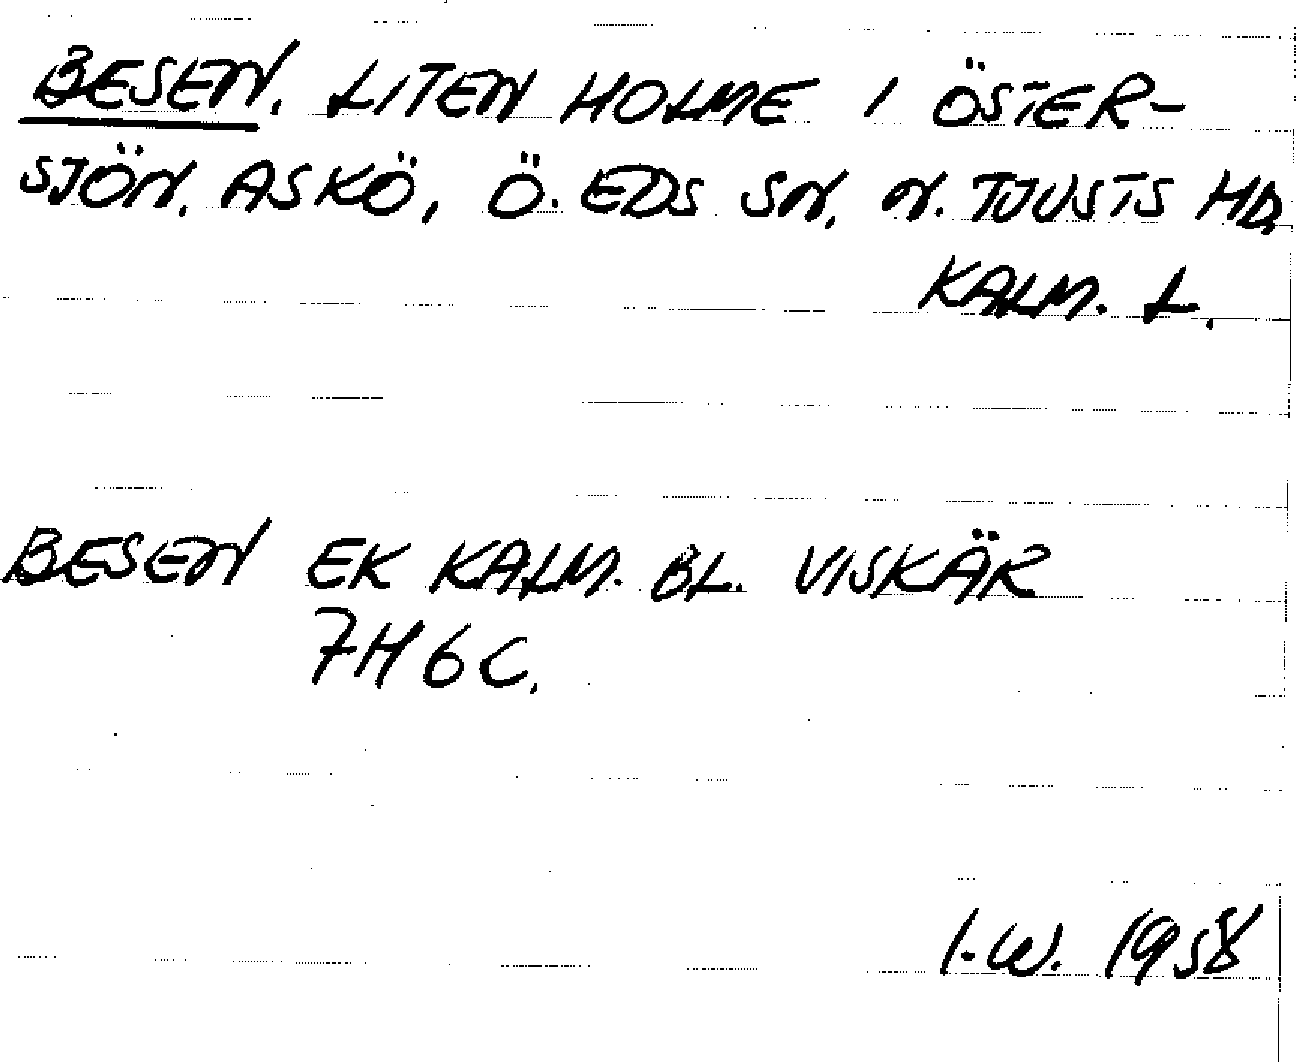 BESEN. LITEN HOLME I ÖSTER-
SJÖN. ASKÖ, Ö. EDS SN, N. TJUSTS HD,
KALM. L.
BESEN EK KALM. BL. VISKÄR
7H6C.
I.W. 1958